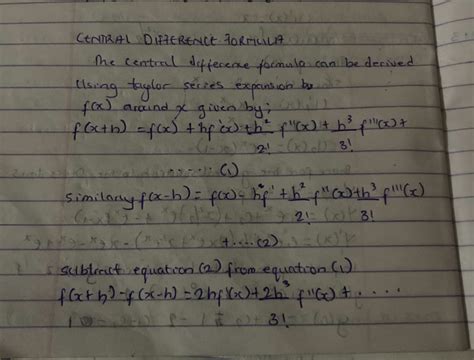 CENTRAL DIFFERENCE FORMULA
The central difference formula can be derived
Using taylor series expansion by
f(x) around x given by;
f(x+h) = f(x) + hf'(x) + h²/2! f''(x) + h³/3! f'''(x) +
...... (1)
Similarly f(x-h) = f(x) - hf' + h²/2! f''(x) + h³/3! f'''(x)
+ .... (2)
Subtract equation (2) from equation (1)
f(x+h) - f(x-h) = 2hf'(x) + 2h³/3! f''(x) + ....